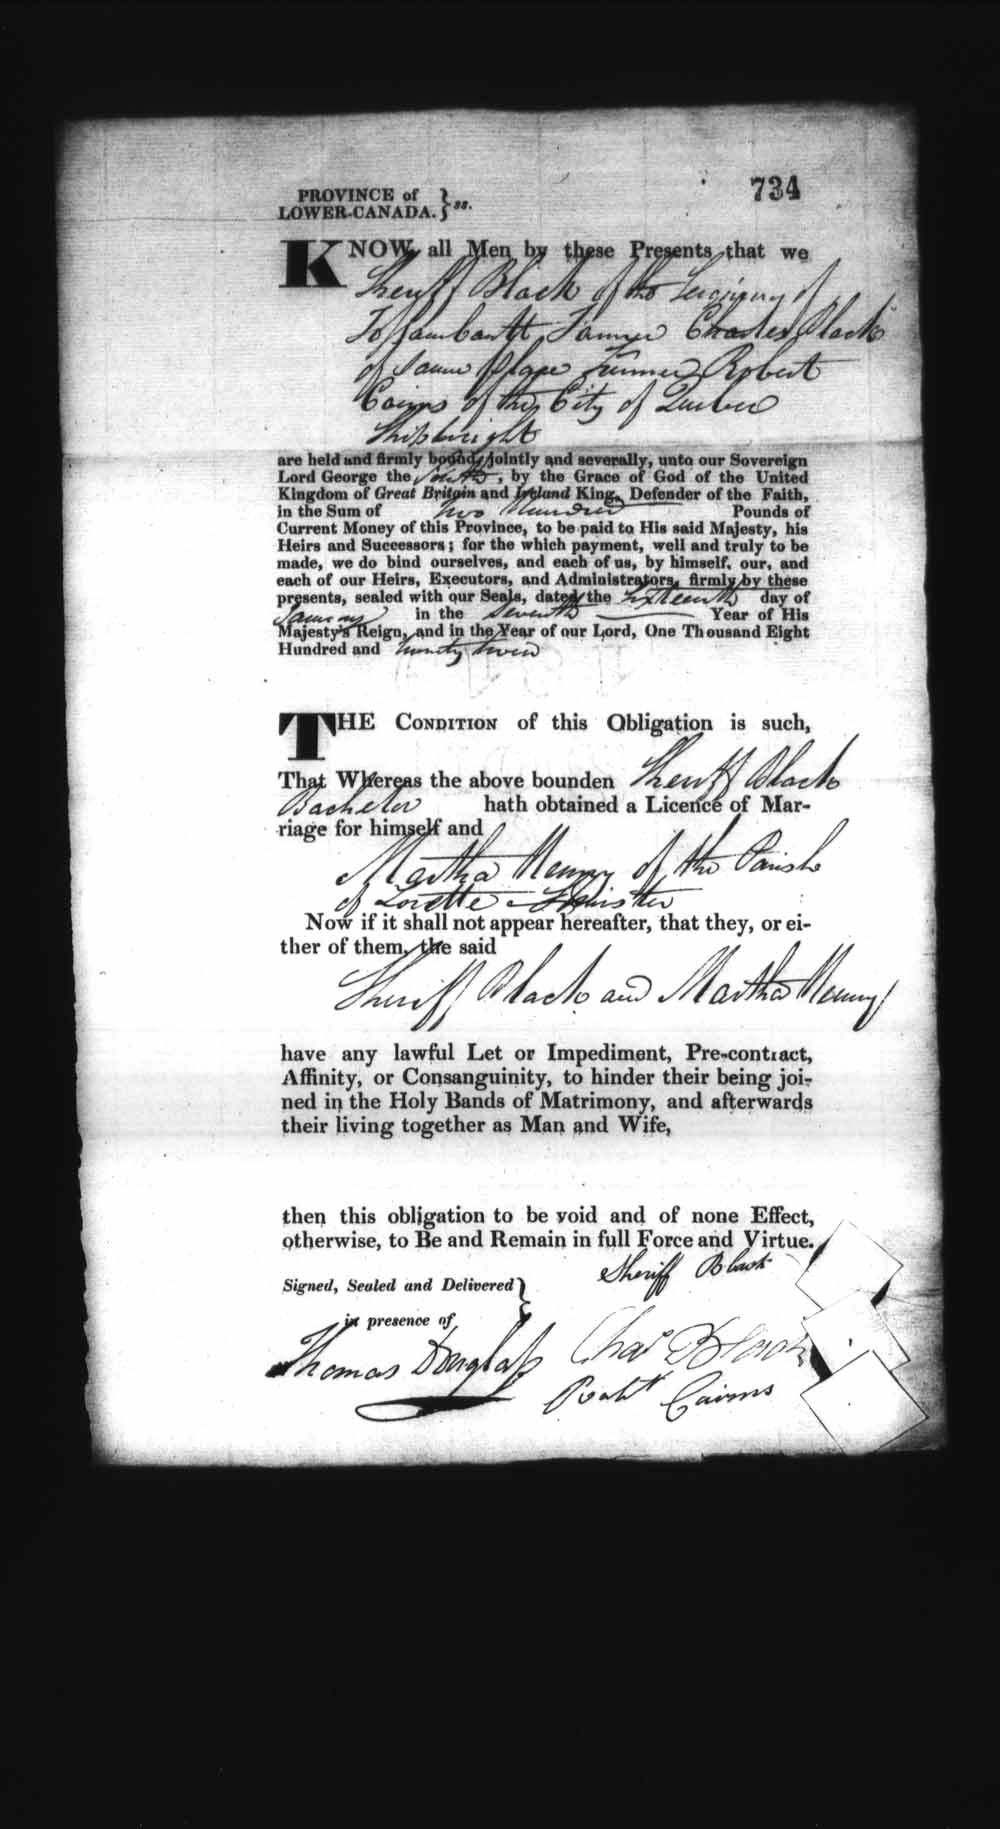 734
PROVINCE of
LOWER-CANADA. } ss.
KNOW all Men by these Presents that we
Sheriff Black of the Seigniory of
Farmer Charles Black
of same place Farmer Robert
Cairns of the City of Quebec
Shipwright
are held and firmly bound, jointly and severally, unto our Sovereign
Lord George the fourth, by the Grace of God of the United
Kingdom of Great Britain and Ireland King, Defender of the Faith,
in the Sum of Two Hundred Pounds of
Current Money of this Province, to be paid to His said Majesty, his
Heirs and Successors; for the which payment, well and truly to be
made, we do bind ourselves, and each of us, by himself, our, and
each of our Heirs, Executors, and Administrators, firmly by these
presents, sealed with our Seals, dated the sixteenth day of
January in the seventh Year of His
Majesty's Reign, and in the Year of our Lord, One Thousand Eight
Hundred and twenty seven
THE CONDITION of this Obligation is such,
That Whereas the above bounden Sheriff Black
Bachelor hath obtained a Licence of Mar-
riage for himself and
Martha of the Parish
of Lorette Spinster
Now if it shall not appear hereafter, that they, or ei-
ther of them, the said
Sheriff Black and Martha
have any lawful Let or Impediment, Pre-contract,
Affinity, or Consanguinity, to hinder their being joi-
ned in the Holy Bands of Matrimony, and afterwards
their living together as Man and Wife,
then this obligation to be void and of none Effect,
otherwise, to Be and Remain in full Force and Virtue.
Sheriff Black
Signed, Sealed and Delivered }
in presence of
Thomas Douglass Chas Black
Robt Cairns